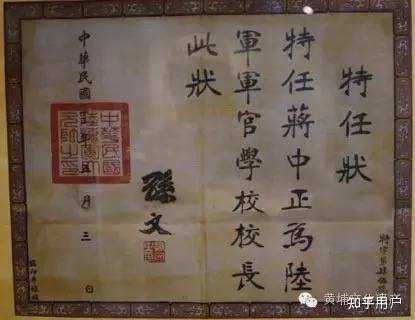 特任狀
特任蔣中正為陸
軍軍官學校校長
此狀
孫文
中華民國
年五月三日
黄埔文
知乎用户